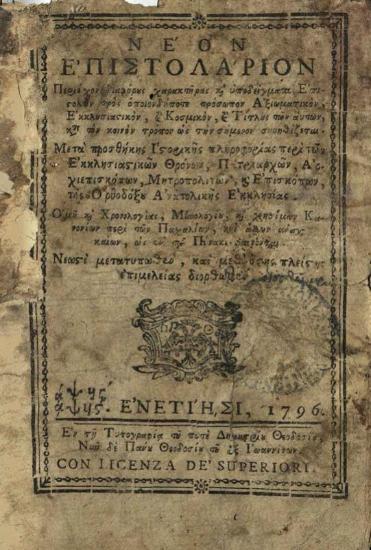 ΝΕΟΝ
ΕΠΙΣΤΟΛΑΡΙΟΝ
Περιέχον διαφόρους χαρακτῆρας ϗ ὑποδείγματα Ἐπι-
στολῶν πρὸς ὁποιονδήποτε πρόσωπον Ἀξιωματικὸν,
Ἐκκλησιαστικὸν, ϗ Κοσμικὸν, ϗ Τίτλους τῶν αὐτῶν,
κατὰ τὸν κοινὸν τρόπον ὡς τὴν σήμερον συνηθίζεται
Μετὰ προσθήκης Ἱστορικῆς πληροφορίας περὶ τῶν
Ἐκκλησιαστικῶν Θρόνων, Πατριαρχῶν, Ἀρ-
χιεπισκόπων, Μητροπολιτῶν, ϗ Ἐπισκόπων,
τῆς Ὀρθοδόξου Ἀνατολικῆς Ἐκκλησίας.
Ὁμοῦ ϗ Χρονολογίας, Μηνολογίου, ϗ χρησίμων Κα-
νονίων περὶ τῶν Πασχαλίων, καὶ ἄλλων
ὡς ἐν τῷ Πίνακι
Νεωστὶ μετατυπωθὲν, καὶ μεθ' ὅσης πλείστης
ἐπιμελείας διορθωθὲν
ἀψϟς.
ἀψϟς. ΕΝΕΤΙΗΣΙ, 1796.
Ἐν τῇ Τυπογραφίᾳ τοῦ ποτὲ Δημητρίου Θεοδοσίου,
Νῦν δὲ Πάνου Θεοδοσίου τοῦ ἐξ Ἰωαννίνων.
CON LICENZA DE' SUPERIORI.